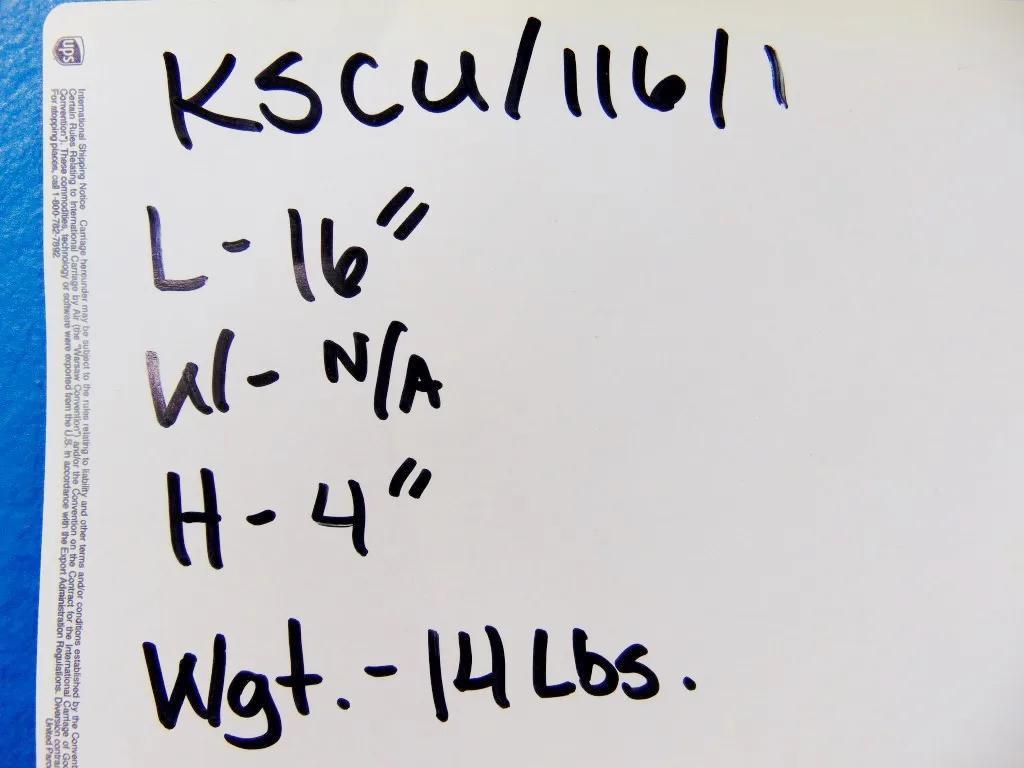 KSCU/116/1
L - 16"
W - N/A
H - 4"
Wgt. - 14 Lbs.
ups
International Shipping Notice Carriage hereunder may be subject to the rules relating to liability and other terms and/or conditions established by the Convent
Certain Rules Relating to International Carriage by Air (the "Warsaw Convention") and/or the Convention on the Contract for the International Carriage of Goo
Convention"). These commodities, technology or software were exported from the U.S. in accordance with the Export Administration Regulations. Diversion contra
For stopping places, call 1-800-782-7892.
United Parc